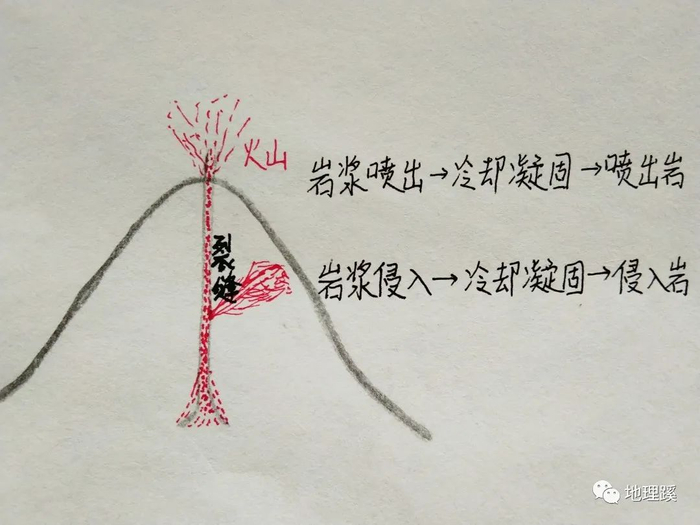 火山
岩浆喷出→冷却凝固→喷出岩
裂缝
岩浆侵入→冷却凝固→侵入岩
地理蹊